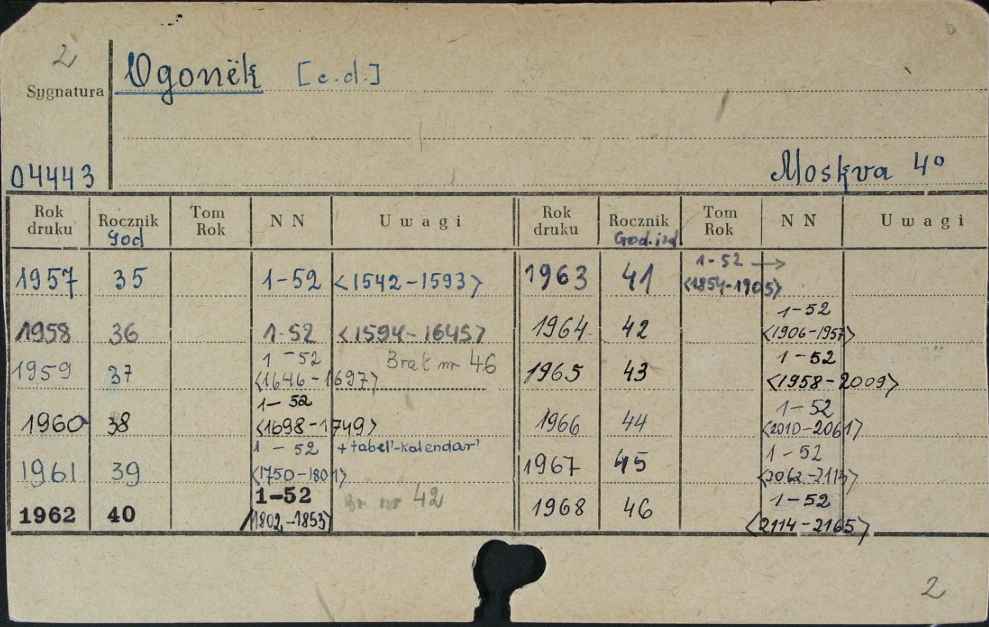 2
Sygnatura
Ogonëk [c.d.]
04443
Moskva 4°
Rok druku Rocznik God Tom Rok N N Uwagi Rok druku Rocznik God.izd Tom Rok N N Uwagi
1957 35 1-52 <1542-1593> 1963 41 1-52 → <1854-1905>
1958 36 1-52 <1594-1645> 1964 42 1-52 <1906-1957>
1959 37 1-52 <1646-1697> Brak nr 46 1965 43 1-52 <1958-2009>
1960 38 1-52 <1698-1749> 1966 44 1-52 <2010-2061>
1961 39 1-52 <1750-1801> +tabel'-kalendar' 1967 45 1-52 <2062-2113>
1962 40 1-52 <1802-1853> Br nr 42 1968 46 1-52 <2114-2165>
2